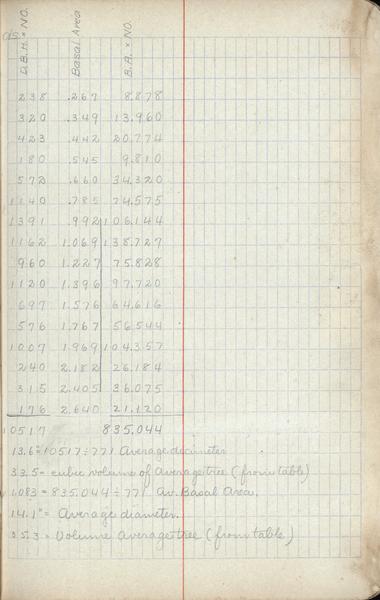 D.B.H. x NO. Basal Area B.A. x NO.
238 .267 8.878
320 .349 13.960
423 .442 20.774
180 .545 9.810
572 .660 34.320
1140 .785 74.575
1391 .992 106.144
1162 1.069 138.727
960 1.227 75.828
1120 1.396 97.720
697 1.576 64.616
576 1.767 56.544
1007 1.969 104.357
240 2.182 26.184
315 2.405 36.075
176 2.640 21.120
10517 835.044
13.6 = 10517 ÷ 771 Average
33.5 = cubic volume of Average tree (from table)
1.083 = 835.044 ÷ 771 Av. Basal Area.
14.1" = Average diameter.
5.3 = Volume Average tree (from table)